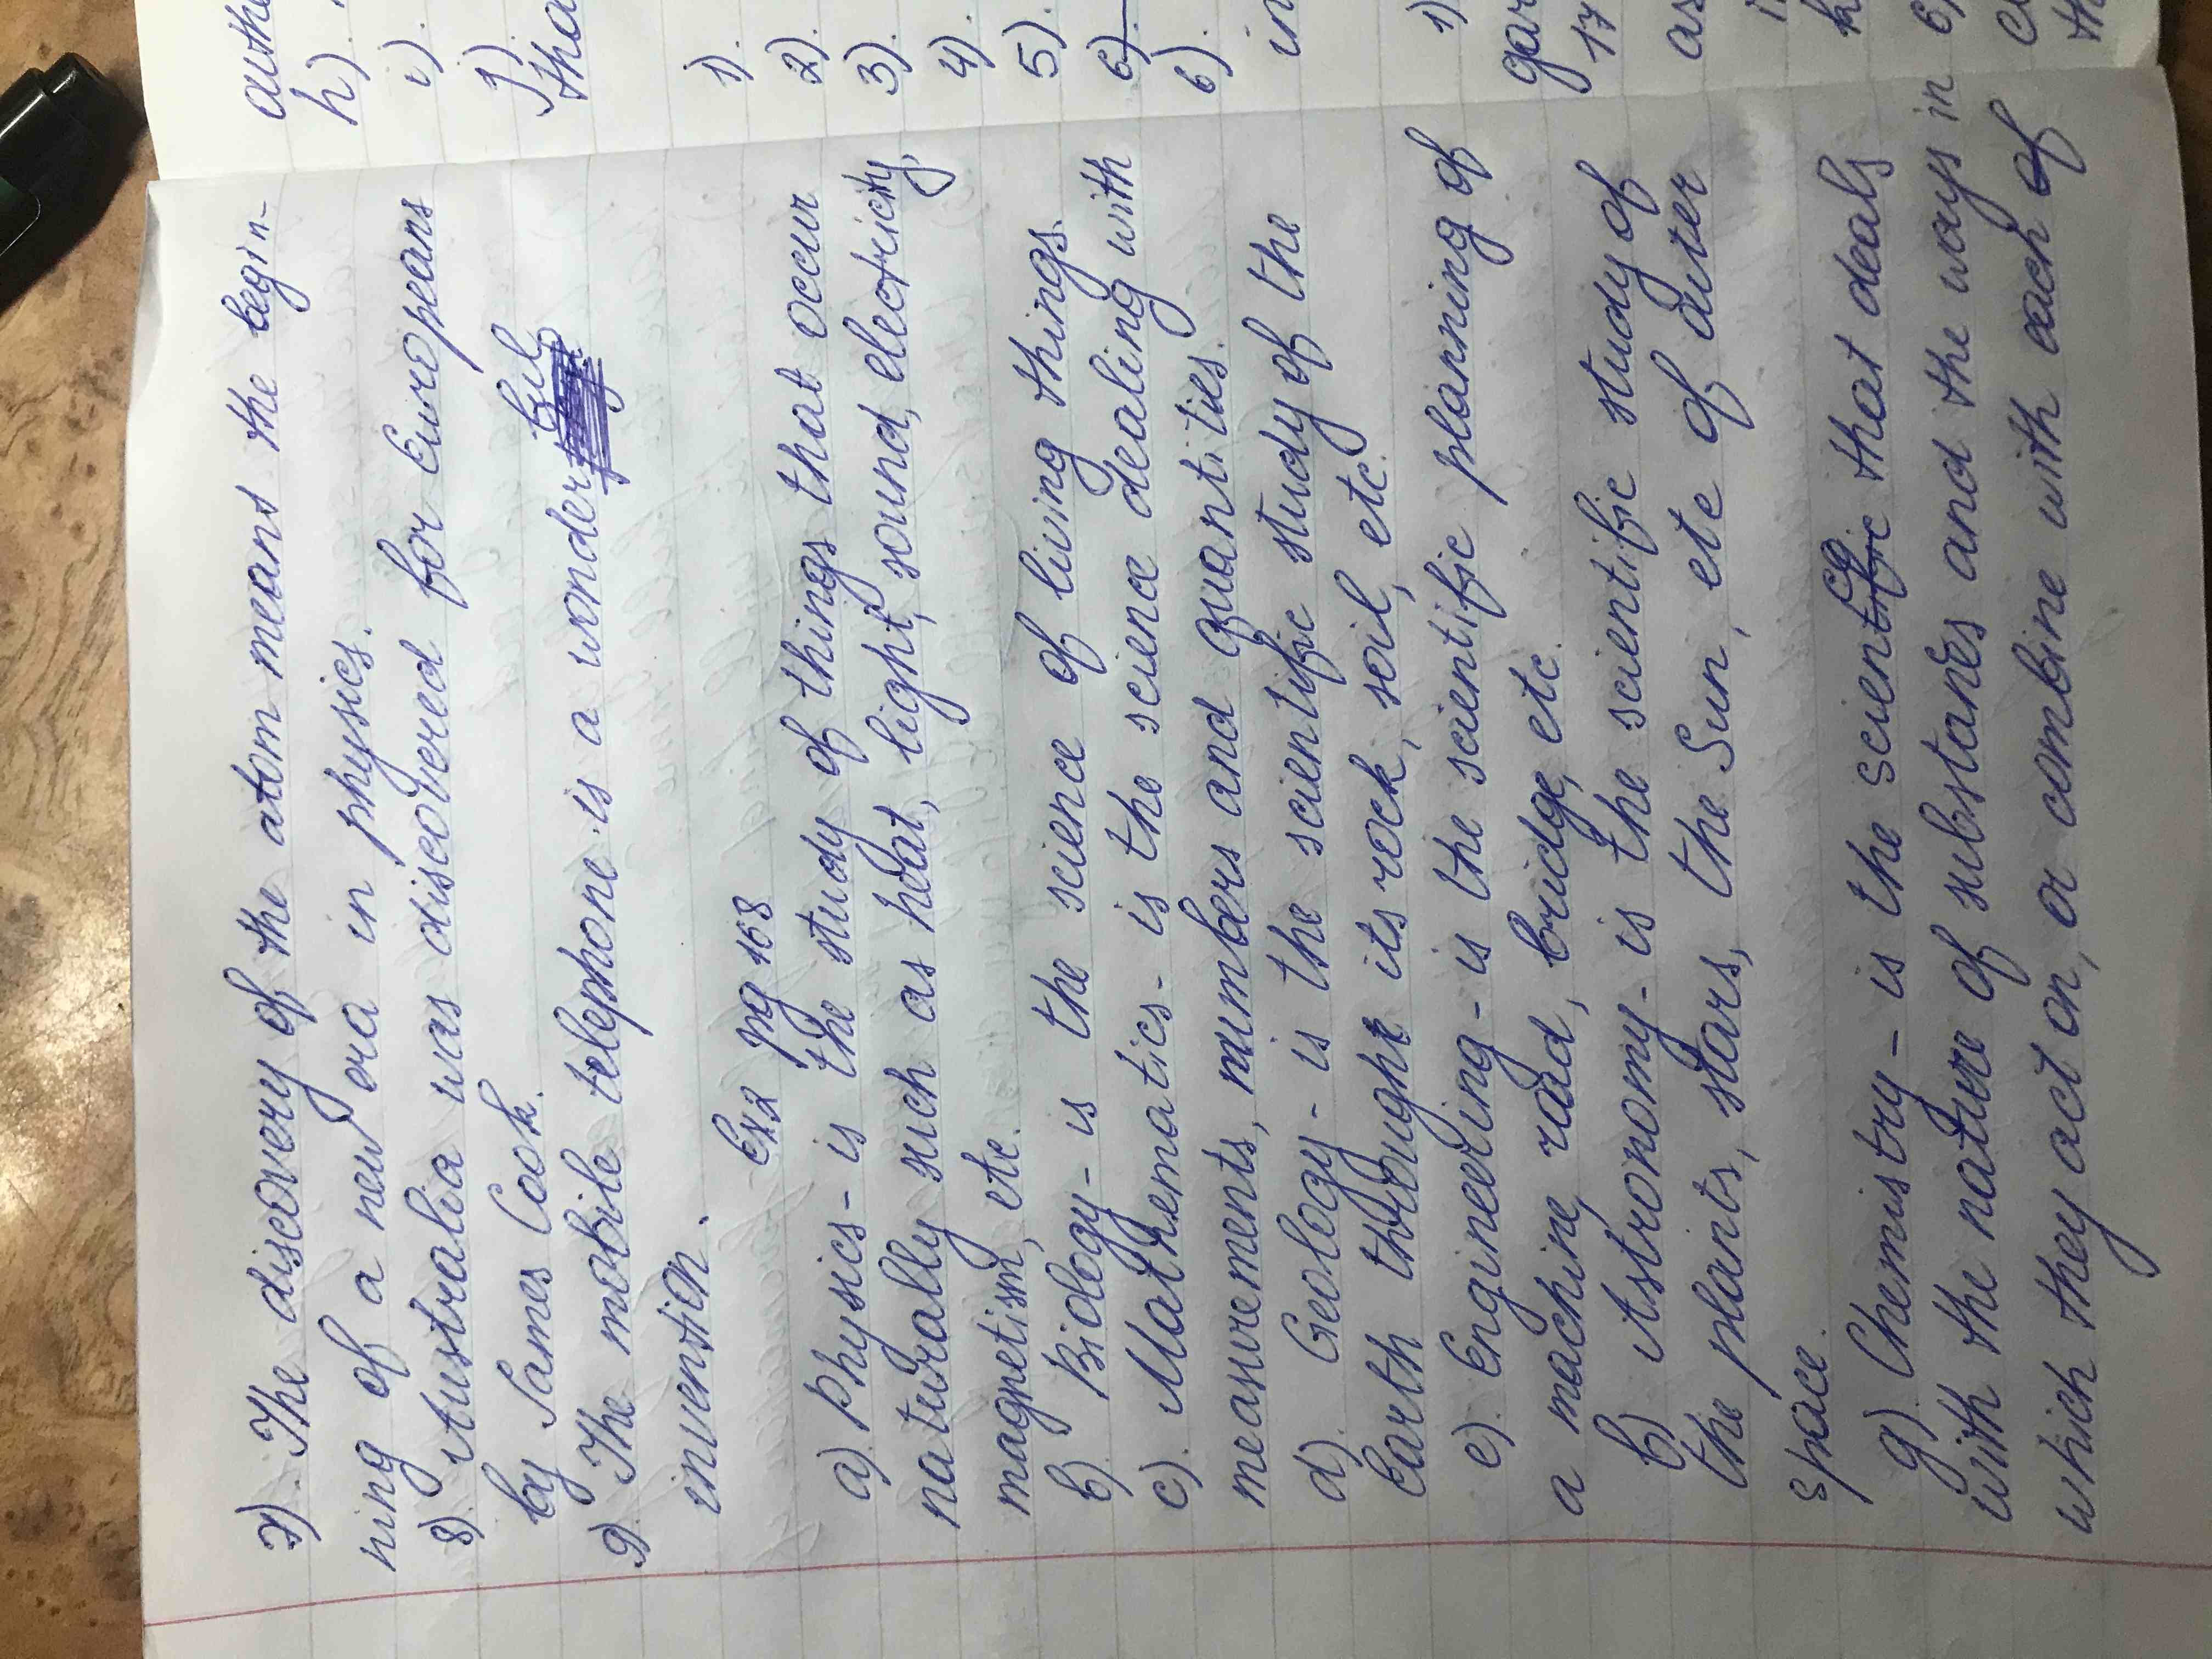 7). The discovery of the atom means the begin-
ning of a new era in physics.
8). Australia was discovered for Europeans
by James Cook.
9). The mobile telephone is a wonderful
invention.
Ex2 pg 168
a). Physics- is the study of things that occur
naturally such as heat, light, sound, electricity,
magnetism, etc.
b). Biology- is the science of living things.
c). Mathematics- is the science dealing with
measurements, numbers and quantities.
d). Geology- is the scientific study of the
Earth throught its rock, soil, etc.
e). Engineering- is the scientific planning of
a machine, road, bridge, etc.
b). Astronomy- is the scientific study of
the plants, stars, the Sun, etc of outer
space.
g). Chemistry- is the science that deals
with the nature of substances and the ways in
which they act on, or combine with each of
authe
h).
i).
J).
tha
1).
2).
3).
4).
5).
6).
6).
in
1)
gar
17
as
6)
th